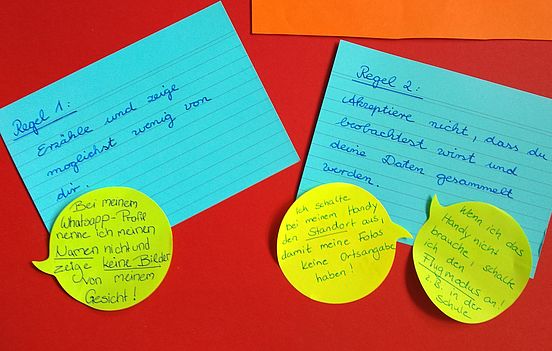 Regel 1:
Erzähle und zeige
möglichst wenig von
dir.
Bei meinem
Whatsapp-Profil
nenne ich meinen
Namen nicht und
zeige keine Bilder
von meinem
Gesicht!
Regel 2:
Akzeptiere nicht, dass du
beobachtest wirst und
deine Daten gesammelt
werden.
Ich schalte
bei meinem Handy
den Standort aus,
damit meine Fotos
keine Ortsangabe
haben!
Wenn ich das
Handy nicht
brauche, schalte
ich den
Flugmodus an!
z.B. in der
Schule